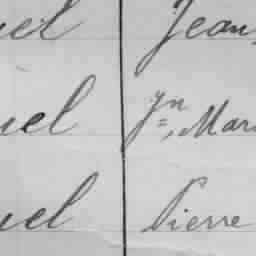 uel Jean
uel Jn Mar
uel Pierre